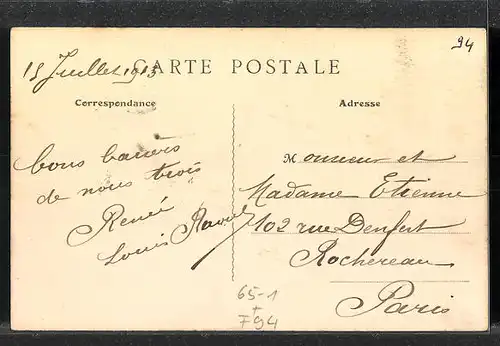 94
15 Juillet 1913
CARTE POSTALE
Correspondance
Adresse
bons baisers
de nous trois
Renée
Louis Raoul
Monsieur et
Madame Etienne
102 rue Denfert
Rochereau
Paris
65-1
+
794